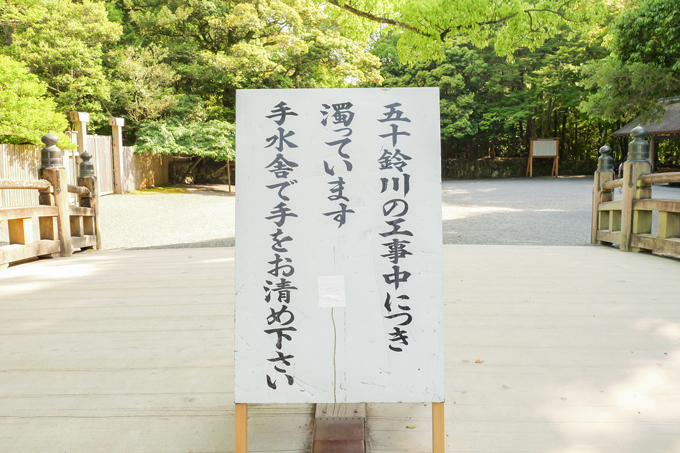 五十鈴川の工事中につき
濁っています
手水舎で手をお清め下さい